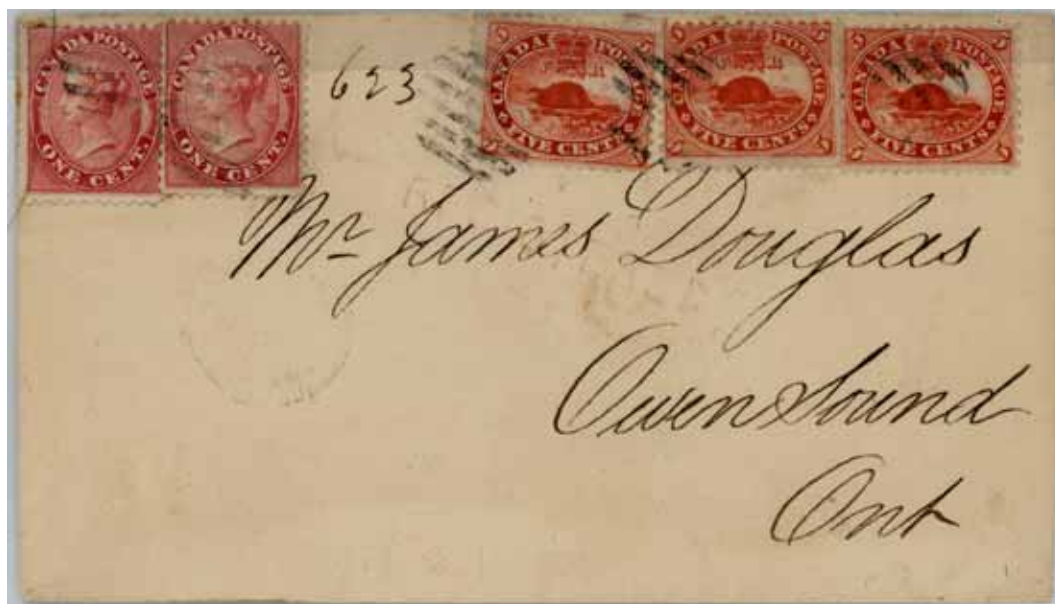 CANADA POSTAGE
ONE CENT.
CANADA POSTAGE
ONE CENT.
623
CANADA POSTAGE
FIVE CENTS
CANADA POSTAGE
FIVE CENTS
CANADA POSTAGE
FIVE CENTS
Mr James Douglas
Owen Sound
Ont